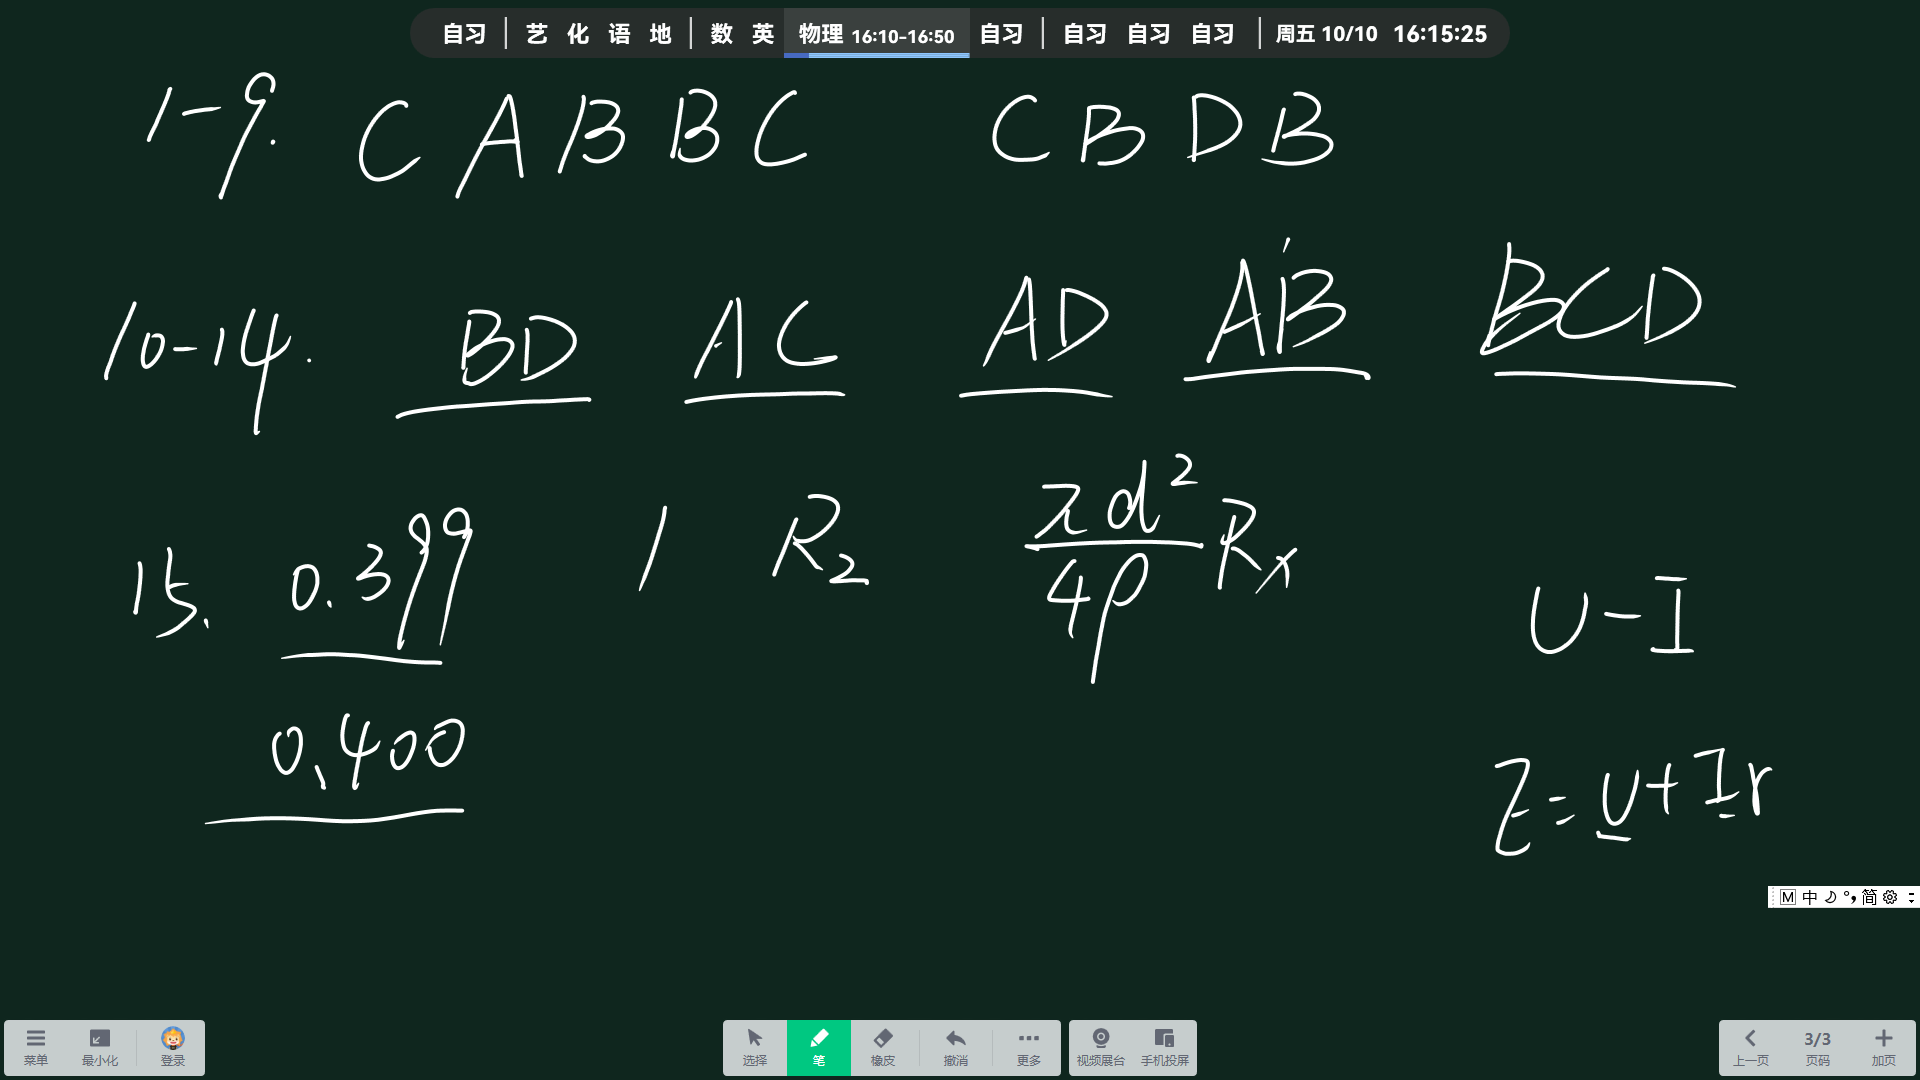 自习 | 艺 化 语 地 | 数 英 物理 16:10-16:50 自习 | 自习 自习 自习 | 周五 10/10 16:15:25
1-9. C A B B C C B D B
10-14. BD AC AD AB BCD
15. 0.399 1 R₂ πd²/4ρ Rx
U-I
0.400
E=U+Ir
M 中 简
菜单 最小化 登录 选择 笔 橡皮 撤消 更多 视频展台 手机投屏 上一页 3/3 页码 加页